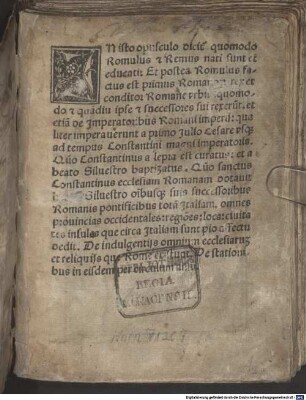 IN isto opusculo dicit̃ quomodo
Romulus ⁊ Remus nati sunt et
educati: Et postea Romulus fa-
ctus est primus Romanoꝝ rex et
conditor Romane vrbis: quomo-
do ⁊ quādiu ipse ⁊ successores sui rexerūt. et
etiā de Imperatoribus Romani imperij: qua
liter imperauerunt a primo Julio Cesare vsq̨
ad tempus Constantini magni imperatoris.
Quō Constantinus a lepra est curatus: et a
beato Siluestro baptizatus. Quō sanctus
Constantinus ecclesiam Romanam dotauit
Siluestro oībusq̨ suis successoribus
Romanis pontificibus totā Italiam, omnes
prouincias occidentales: regiões: loca: ciuita
tes insulas que circa Italiam sunt
dedit. De indulgentijs omnium ecclesiarum
et reliquijs que Rome existunt. De stationi
bus in eisdem per circulum anni.
REGIA
MONACENSIS